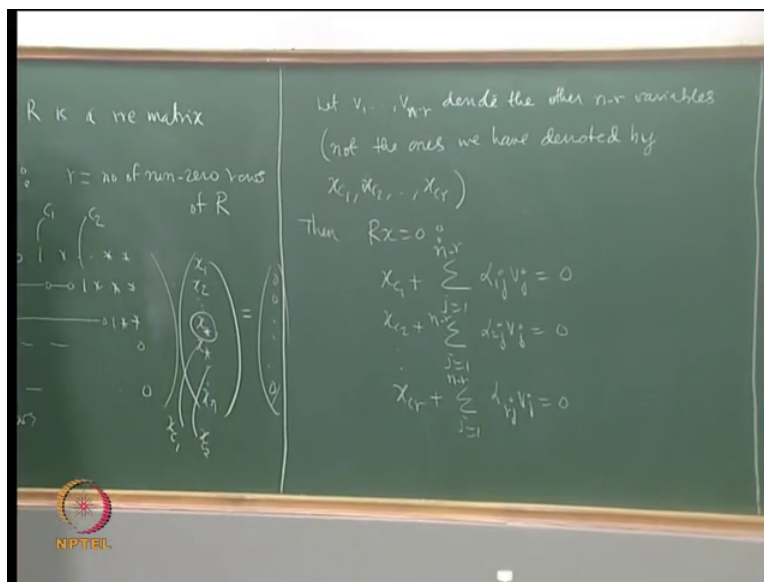 R is a rre matrix
r = no of non-zero rows
of R
C₁ C₂
0 1 * . * *
0 0 1 * * *
0 1 * *
0
0
x₁
x₂
⋮
x_*
x_*
⋮
x_n
=
0
0
⋮
0
x_{c₁} x_{c₂}
Let v₁ ..., v_{n-r} denote the other n-r variables
(not the ones we have denoted by
x_{c₁}, x_{c₂}, .., x_{cr})
Then Rx=0 :
x_{c₁} + ∑_{j=1}^{n-r} α_{1j} v_j = 0
x_{c₂} + ∑_{j=1}^{n-r} α_{2j} v_j = 0
⋮
x_{cr} + ∑_{j=1}^{n-r} α_{rj} v_j = 0
NPTEL